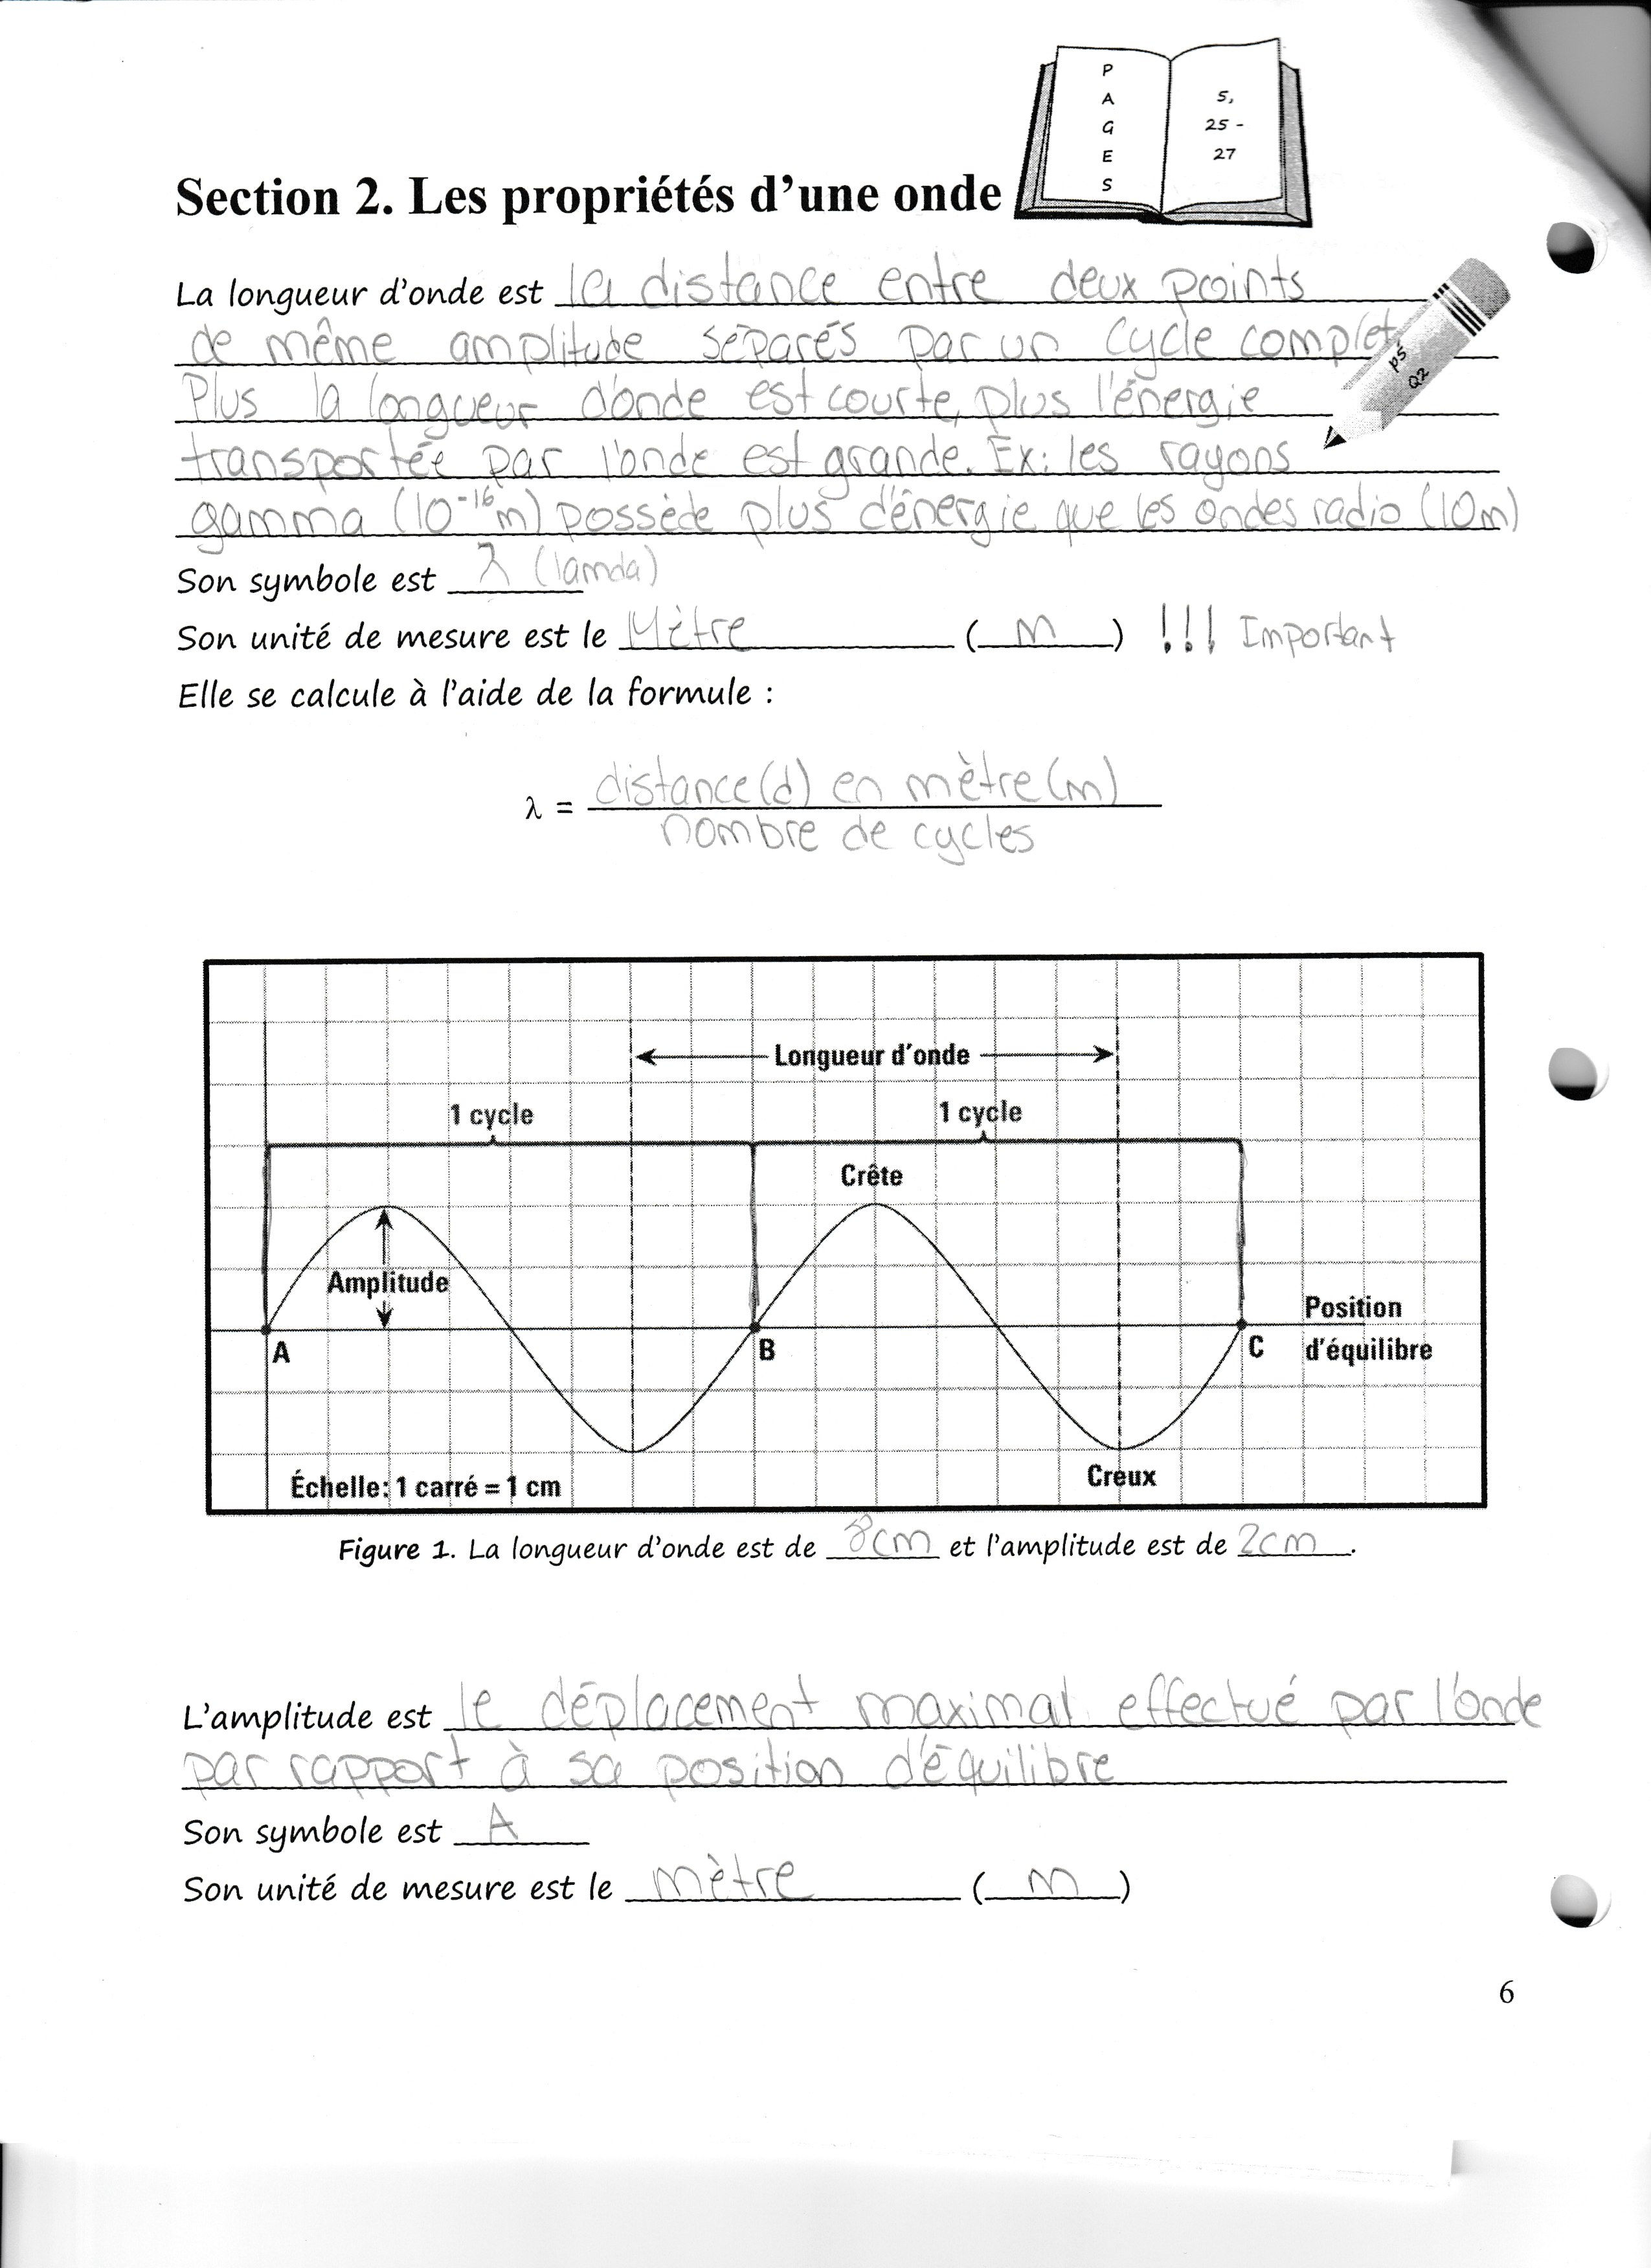 P
A
G
E
S
5,
25 -
27
Section 2. Les propriétés d'une onde
La longueur d'onde est la distance entre deux points
de même amplitude séparés par un cycle complet
p5
Q2
Plus la longueur d'onde est courte, plus l'énergie
transportée par l'onde est grande. Ex: les rayons
gamma (10⁻¹⁶m) possède plus d'énergie que les ondes radio (10m)
Son symbole est λ (lamda)
Son unité de mesure est le Mètre (m) !!! Important
Elle se calcule à l'aide de la formule :
distance(d) en mètre(m)
λ =
nombre de cycles
Longueur d'onde
1 cycle
1 cycle
Crête
Amplitude
Position
d'équilibre
A
B
C
Creux
Échelle: 1 carré = 1 cm
Figure 1. La longueur d'onde est de 8cm et l'amplitude est de 2cm.
L'amplitude est le déplacement maximal effectué par l'onde
par rapport à sa position d'équilibre
Son symbole est A
Son unité de mesure est le mètre (m)
6